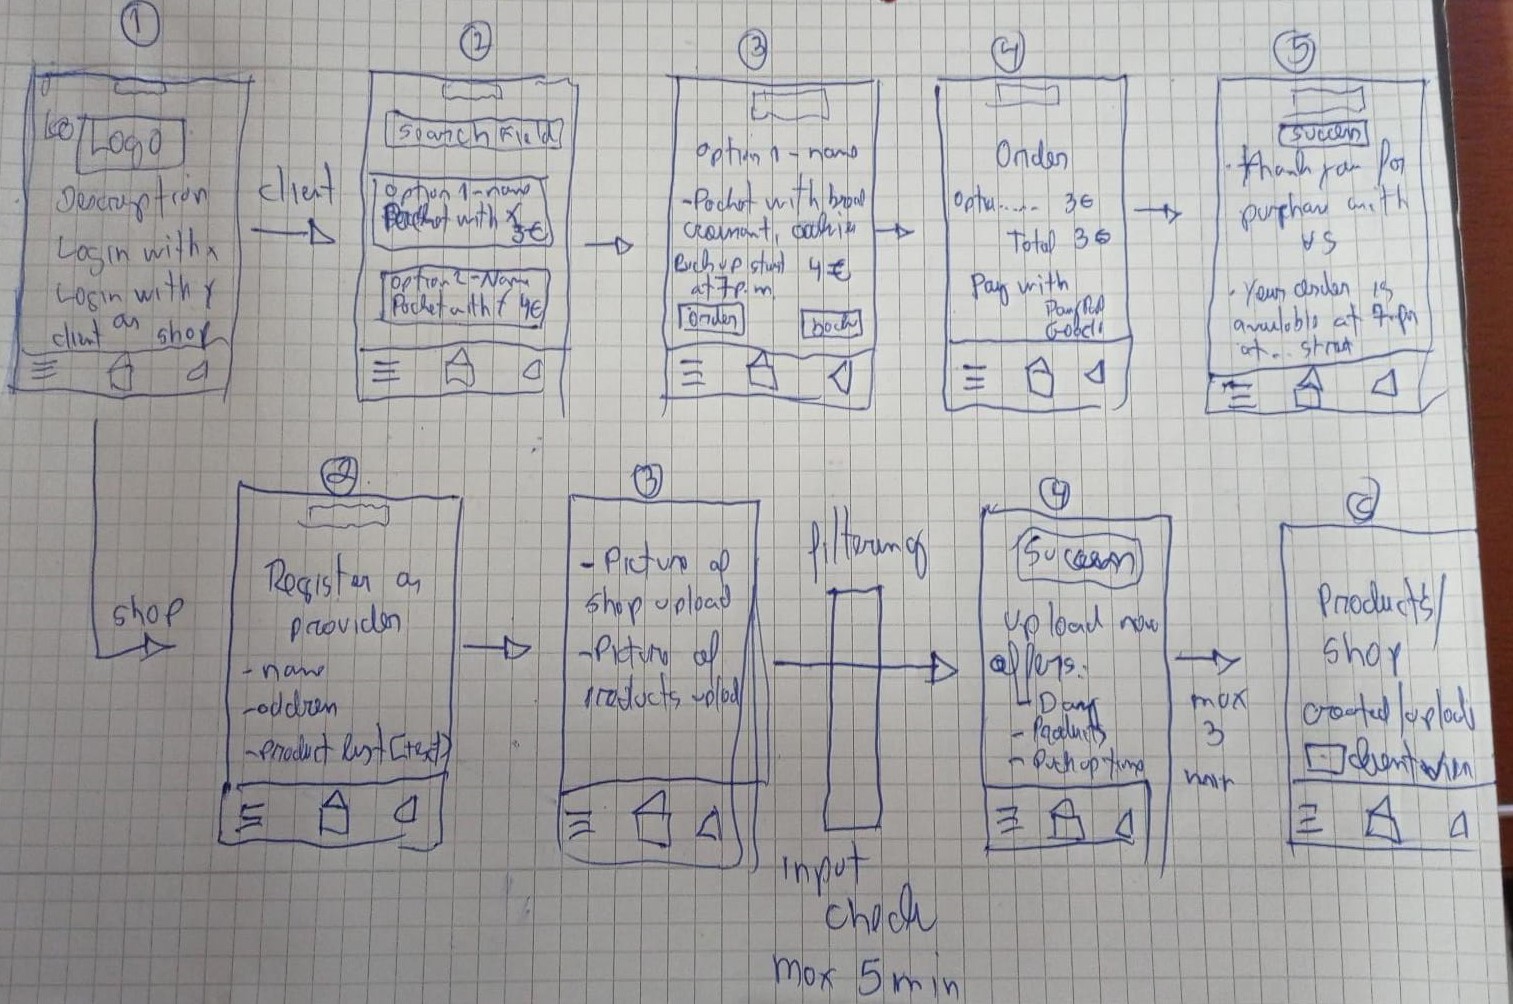 1
Logo
Description
Login with x
Login with Y
as
client shop
client
2
Search Field
Option 1 - name
with x
3€
Option 2 - Name
Pocket with Y 4€
3
Option 1 - name
- Pocket with bread
croissant, cookie
Pick up start 4€
at 7p.m
Order back
4
Order
3€
Total 3€
Pay with
PayPal
5
Success
Thank you for
purchase with
us
Your order is
available at 7pm
at...
shop
2
Register as
provider
- name
- address
- Product list (text)
3
- Picture of
shop upload
- Picture of
products upload
filtering
input
check
max 5 min
4
Success
Upload new
offers:
- Day
- Products
- Pick up time
max
3
min
Products/
shop
created/upload